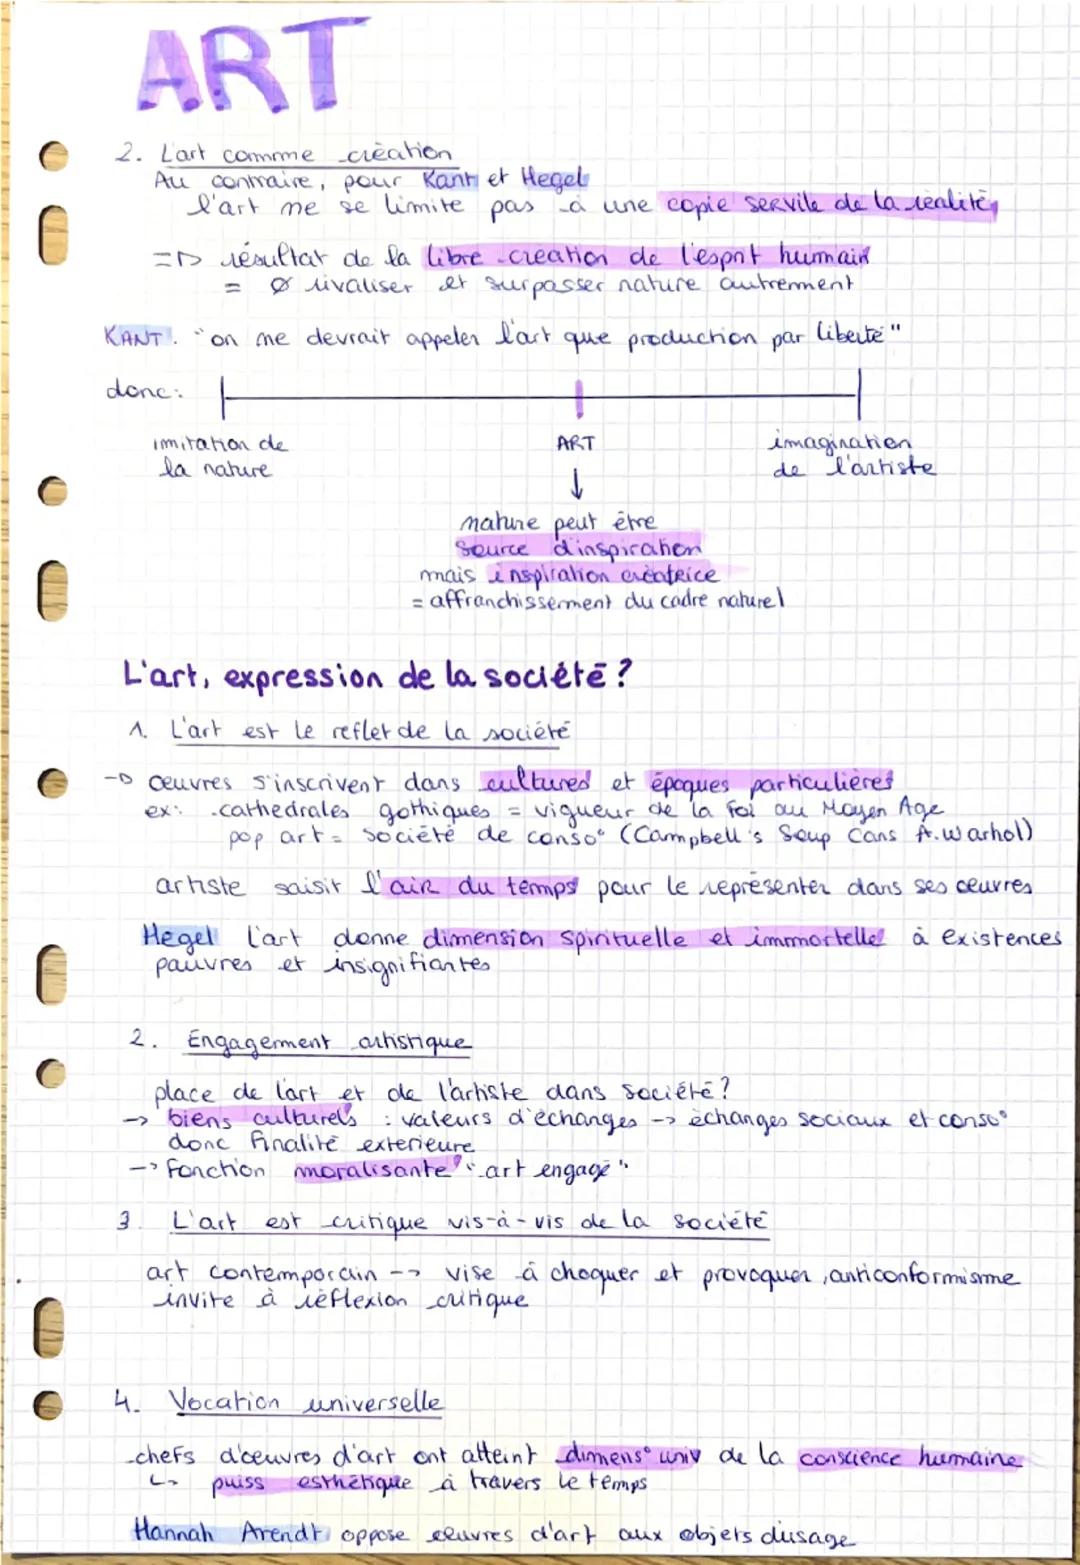 ART
2. L'art comme création
Au contraire, pour Kant et Hegel
l'art ne se limite pas à une copie servile de la réalité,
=D résultat de la libre création de l'esprit humain
= Ø rivaliser et surpasser nature autrement
KANT : "on ne devrait appeler l'art que production par liberté"
donc:
imitation de la nature
ART
imagination de l'artiste
↓
nature peut être
source d'inspiration
mais inspiration créatrice
= affranchissement du cadre naturel
L'art, expression de la société ?
1. L'art est le reflet de la société
-D œuvres s'inscrivent dans cultures et époques particulières
ex: cathédrales gothiques = vigueur de la Foi au Moyen Age
pop art = société de conso° (Campbell's Soup Cans A. Warhol)
artiste saisit l'air du temps pour le représenter dans ses œuvres
Hegel l'art donne dimension spirituelle et immortelle à existences
pauvres et insignifiantes
2. Engagement artistique
place de l'art et de l'artiste dans société ?
-> biens culturels : valeurs d'échanges -> échanges sociaux et conso°
donc finalité extérieure
-> Fonction moralisante "art engagé"
3. L'art est critique vis-à-vis de la société
art contemporain --> vise à choquer et provoquer, anticonformisme
invite à réflexion critique
4. Vocation universelle
chefs d'œuvres d'art ont atteint dimens° univ de la conscience humaine
↳ puiss esthétique à travers le temps
Hannah Arendt oppose œuvres d'art aux objets d'usage